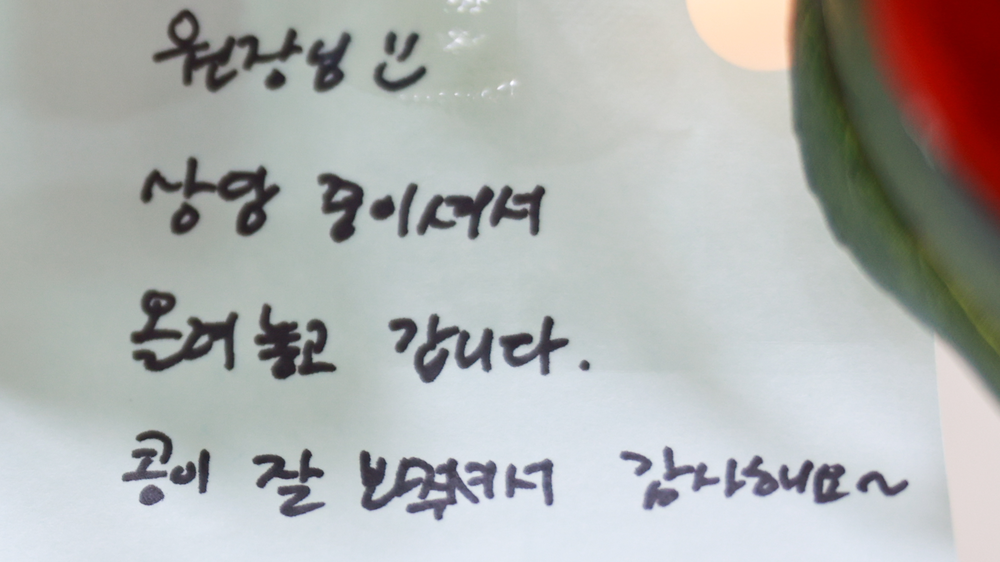 원장님 :)
상담 중이셔서
올려놓고 갑니다.
콩이 잘 봐주셔서 감사해요~